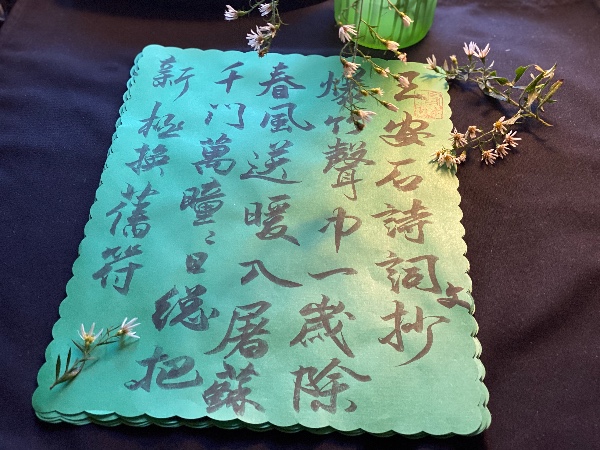 王安石詩詞抄
文
爆竹聲中一歲除
春風送暖入屠蘇
千门萬曈々日總把
新桃換舊符